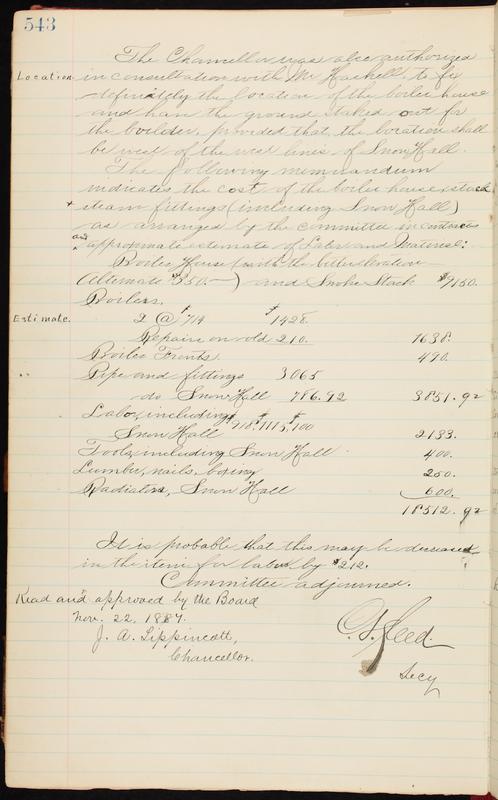 543
The Chancellor was also authorized
Location in consultation with Mr Haskell to fix
definitely the location of the boiler house
and have the ground staked out for
the builder, provided that the location shall
be west of the west line of Snow Hall.
The following memorandum
indicates the cost of the boiler house, stack
steam fittings (including Snow Hall)
as arranged by the committee in contracts
and approximate estimate of Labor and Material:
Boiler House (with the bitters
Alternate $350.—) and Smoke Stack $9150.
Boilers.
Estimate. 2 @ $714 $1428.
Repairs on old 210. 1638.
Boiler Fronts 490.
Pipe and fittings 3065
do Snow Hall 786.92 3851.92
Labor, including
Snow Hall $918. $1115, $100 2133.
Tools, including Snow Hall 400.
Lumber, nails, boxing 250.
Radiators, Snow Hall 600.
18512.92
It is probable that this may be decreased
in the item for labor by $212.
Committee adjourned.
Read and approved by the Board
Nov. 22, 1887.
J. A. Lippincott,
Chancellor.
C. S. Gleed.
Secy